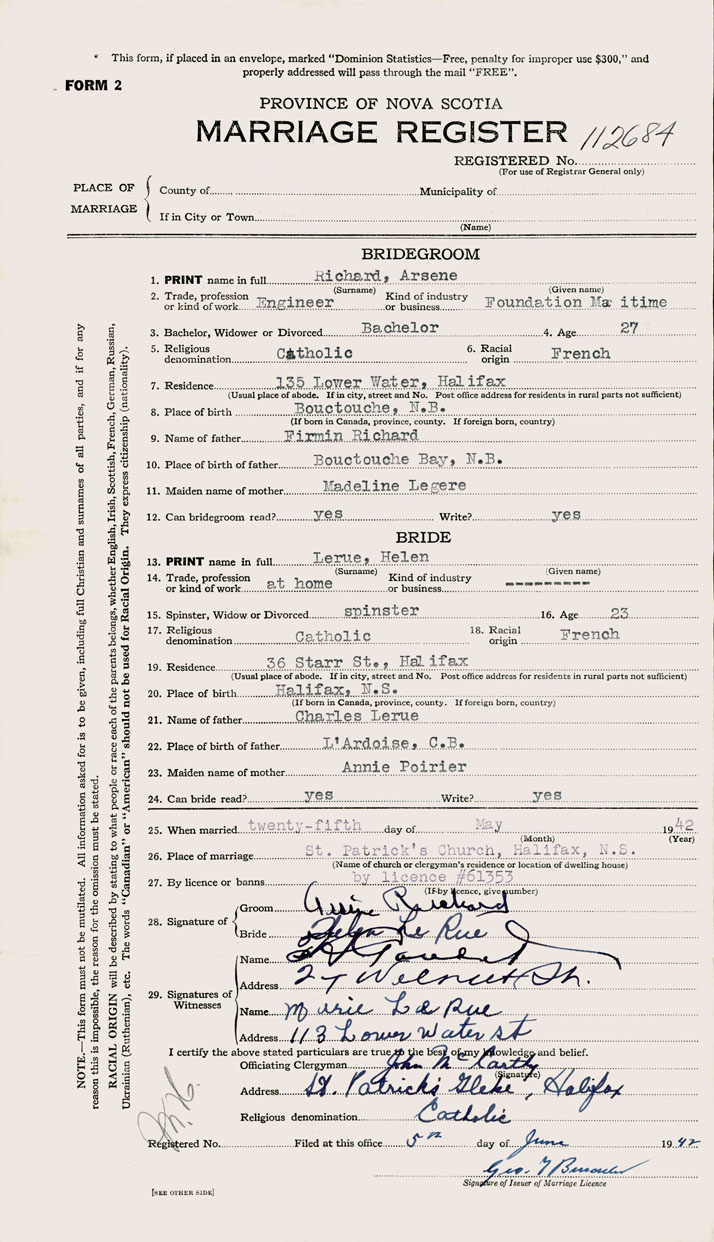 * This form, if placed in an envelope, marked "Dominion Statistics—Free, penalty for improper use $300," and
properly addressed will pass through the mail "FREE".
FORM 2
PROVINCE OF NOVA SCOTIA
MARRIAGE REGISTER 112684
REGISTERED No.
(For use of Registrar General only)
PLACE OF MARRIAGE
County of Municipality of
If in City or Town
(Name)
BRIDEGROOM
1. PRINT name in full Richard, Arsene
(Surname) (Given name)
2. Trade, profession or kind of work Engineer Kind of industry or business Foundation Maritime
3. Bachelor, Widower or Divorced Bachelor 4. Age 27
5. Religious denomination Catholic 6. Racial origin French
7. Residence 135 Lower Water, Halifax
(Usual place of abode. If in city, street and No. Post office address for residents in rural parts not sufficient)
8. Place of birth Bouctouche, N.B.
(If born in Canada, province, county. If foreign born, country)
9. Name of father Firmin Richard
10. Place of birth of father Bouctouche Bay, N.B.
11. Maiden name of mother Madeline Legere
12. Can bridegroom read? yes Write? yes
BRIDE
13. PRINT name in full Lerue, Helen
(Surname) (Given name)
14. Trade, profession or kind of work at home Kind of industry or business ---------
15. Spinster, Widow or Divorced spinster 16. Age 23
17. Religious denomination Catholic 18. Racial origin French
19. Residence 36 Starr St., Halifax
(Usual place of abode. If in city, street and No. Post office address for residents in rural parts not sufficient)
20. Place of birth Halifax, N.S.
(If born in Canada, province, county. If foreign born, country)
21. Name of father Charles Lerue
22. Place of birth of father L'Ardoise, C.B.
23. Maiden name of mother Annie Poirier
24. Can bride read? yes Write? yes
25. When married twenty-fifth day of May 1942
(Month) (Year)
26. Place of marriage St. Patrick's Church, Halifax, N.S.
(Name of church or clergyman's residence or location of dwelling house)
27. By licence or banns by licence #61353
(If by licence, give number)
28. Signature of
Groom Richard
Bride Helen Le Rue
29. Signatures of Witnesses
Name
Address 27 St.
Name Marie La Rue
Address 113 Lower Water St
I certify the above stated particulars are true to the best of my knowledge and belief.
Officiating Clergyman John McCarthy
(Signature)
Address St. Patrick's Glebe, Halifax
Religious denomination Catholic
Registered No. Filed at this office 5th day of June 1942
Geo.
Signature of Issuer of Marriage Licence
[SEE OTHER SIDE]
NOTE.—This form must not be mutilated. All information asked for is to be given, including full Christian and surnames of all parties, and if for any
reason this is impossible, the reason for the omission must be stated.
RACIAL ORIGIN will be described by stating to what people or race each of the parents belongs, whether English, Irish, Scottish, French, German, Russian,
Ukrainian (Ruthenian), etc. The words "Canadian" or "American" should not be used for Racial Origin. They express citizenship (nationality).